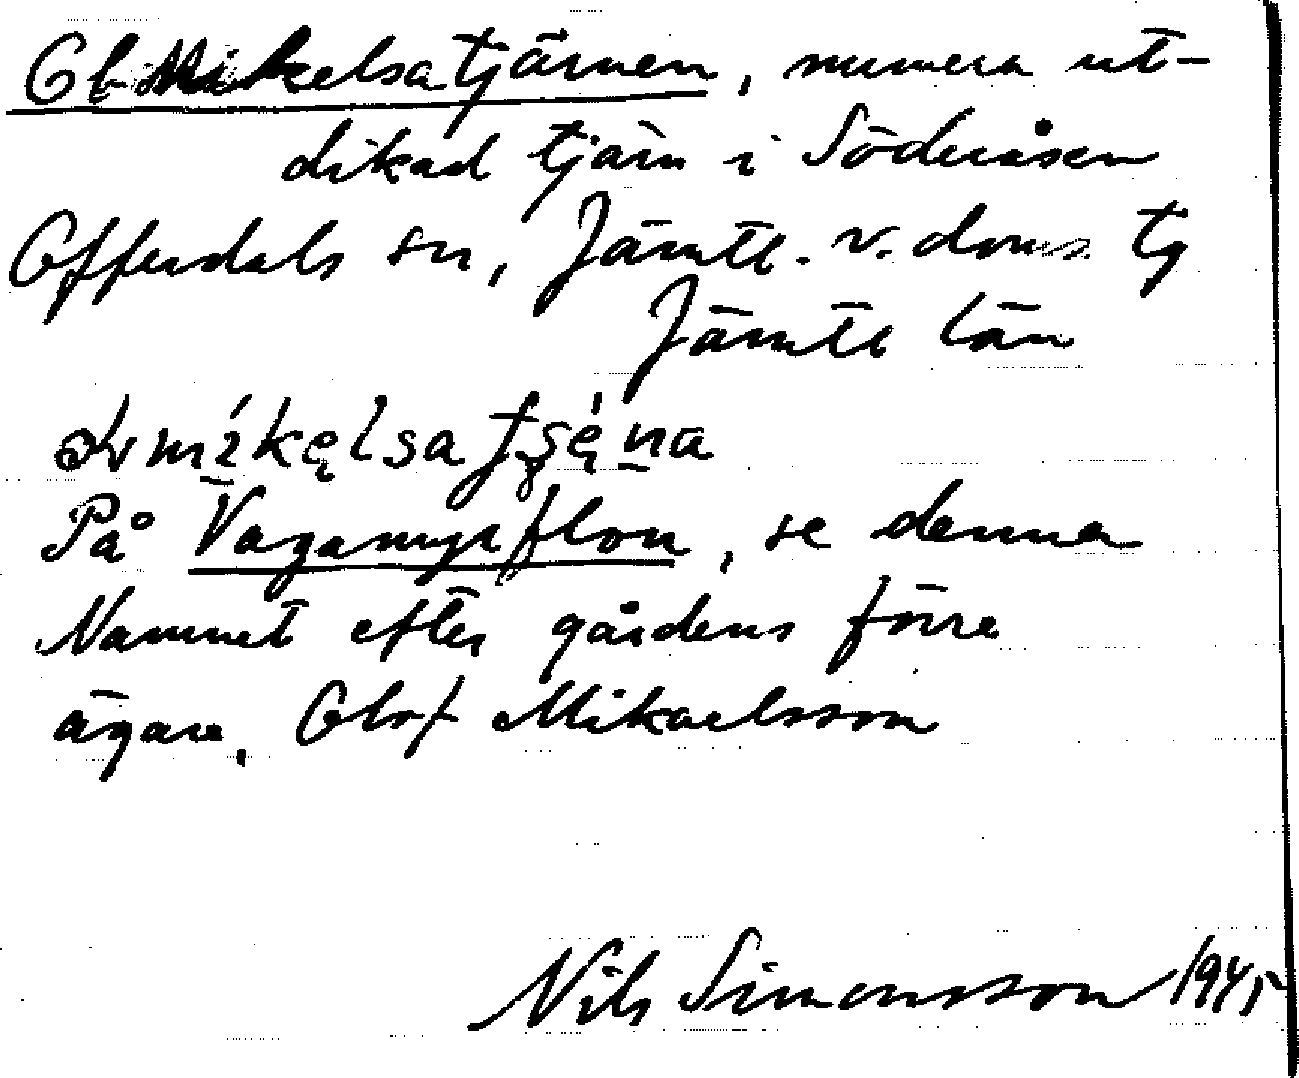 Ol-Mikelsatjärnen, numera ut-
dikad tjärn i Söderåsen
Offerdals sn, Jämtl. v. doms. tg
Jämtl län
mikęlsa
På Vagamyrflon, se denna
Namnet efter gårdens förre
ägare, Olof Mikaelsson
Nils Simonsson 1945